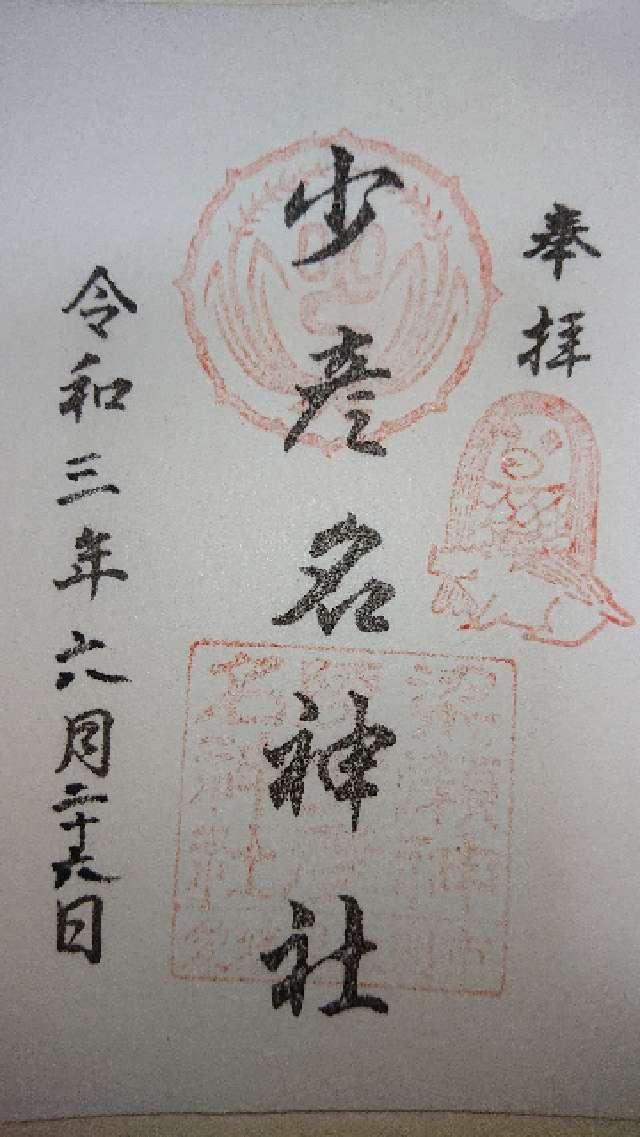 奉拝
少彦名神社
令和三年六月二十六日